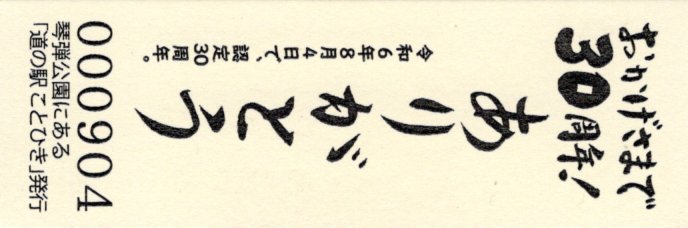 おかげさまで
30周年!
ありがとう
令和6年8月4日で、認定30周年。
000904
琴弾公園にある
「道の駅ことひき」発行